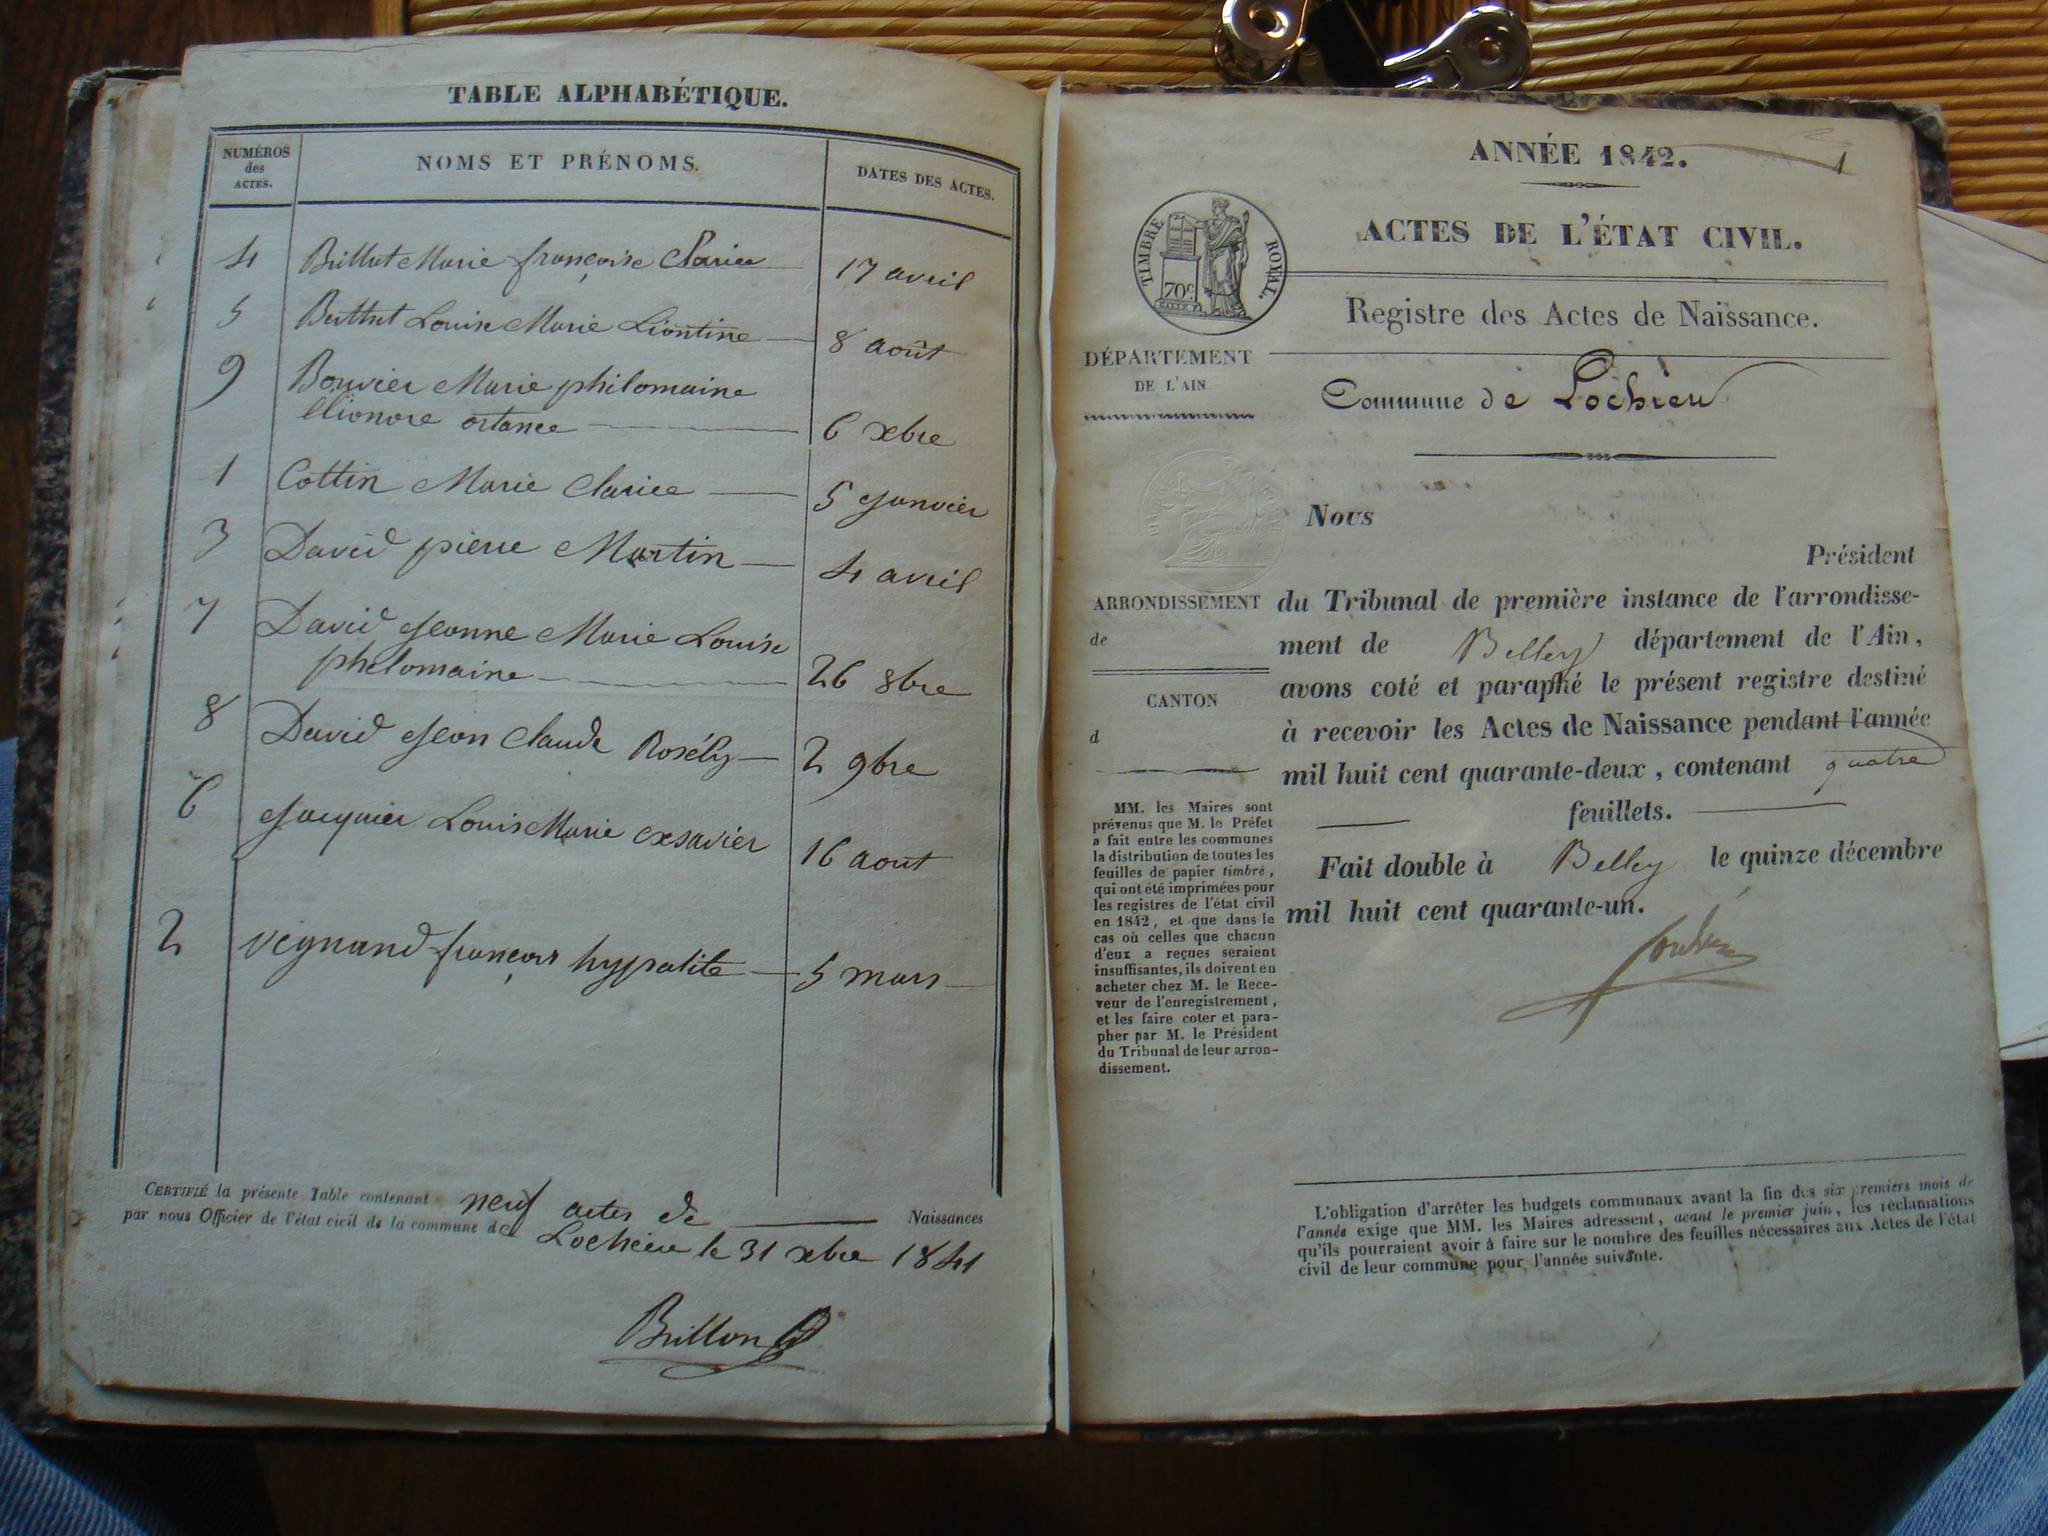 TABLE ALPHABÉTIQUE.
NUMÉROS des ACTES. NOMS ET PRÉNOMS. DATES DES ACTES.
4 Brillat Marie françoise Clarice 17 avril
5 Berthet Louise Marie Liontine 8 août
9 Bouvier Marie philomaine
elionore ortance 6 xbre
1 Cottin Marie Clarice 5 Janvier
3 David pierre Martin 4 avril
7 David Jeanne Marie Louise
philomaine 26 8bre
8 David Jean Claude Rosély 2 9bre
6 Jacquier Louis Marie exsavier 16 aout
2 Vignand françois hypolite 5 mars
CERTIFIÉ la présente Table contenant neuf actes de Naissances
par nous Officier de l'état civil de la commune de Lochieu le 31 xbre 1841
Brillon
ANNÉE 1842.
1
TIMBRE ROYAL.
70c
ACTES DE L'ÉTAT CIVIL.
Registre des Actes de Naissance.
DÉPARTEMENT
DE L'AIN
Commune de Lochieu
Nous
Président
du Tribunal de première instance de l'arrondisse-
ment de Belley département de l'Ain,
avons coté et paraphé le présent registre destiné
à recevoir les Actes de Naissance pendant l'année
mil huit cent quarante-deux, contenant quatre
feuillets.
Fait double à Belley le quinze décembre
mil huit cent quarante-un.
ARRONDISSEMENT
de
CANTON
d
MM. les Maires sont
prévenus que M. le Préfet
a fait entre les communes
la distribution de toutes les
feuilles de papier timbré,
qui ont été imprimées pour
les registres de l'état civil
en 1842, et que dans le
cas où celles que chacun
d'eux a reçues seraient
insuffisantes, ils doivent en
acheter chez M. le Rece-
veur de l'enregistrement,
et les faire coter et para-
pher par M. le Président
du Tribunal de leur arron-
dissement.
L'obligation d'arrêter les budgets communaux avant la fin des six premiers mois de
l'année exige que MM. les Maires adressent, avant le premier juin, les réclamations
qu'ils pourraient avoir à faire sur le nombre des feuilles nécessaires aux Actes de l'état
civil de leur commune pour l'année suivante.